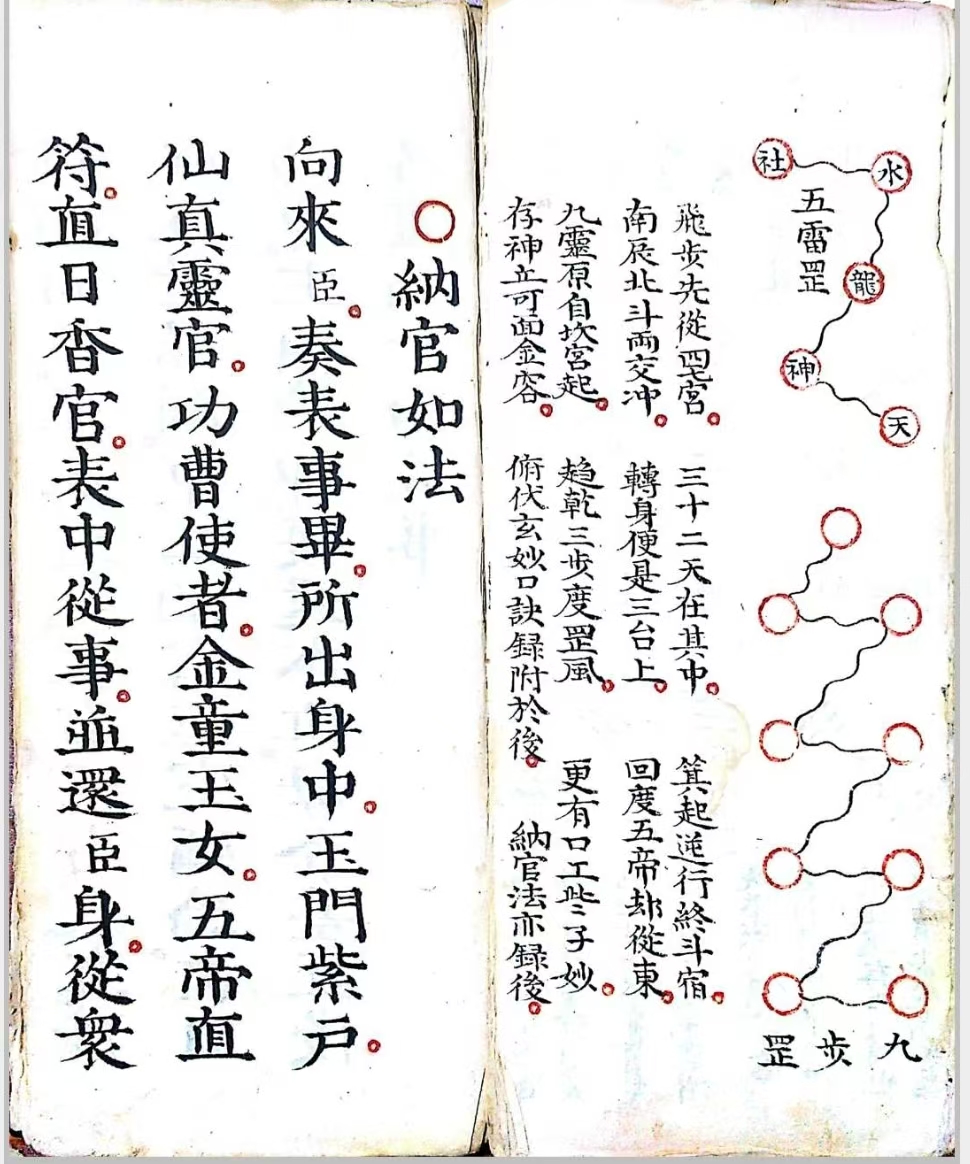 社
水
龍
神
天
五雷罡
九步罡
飛步先從宮。三十二天在其中。箕起逆行終斗宿。
南辰北斗兩交冲。轉身便是三台上。回度五帝却從東。
九靈原自坎宮起。趋乾三步度罡風。更有口工些子妙。
存神立可面金容。俯伏玄妙口訣録附於後。納官法亦録後。
○納官如法
向來臣。奏表事畢。所出身中。玉門紫戶。
仙真靈官。功曹使者。金童玉女。五帝直
符。直日香官。表中從事。並還臣身。從衆